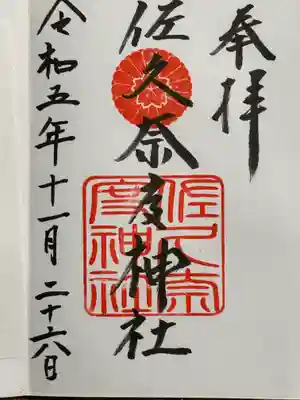 奉拝
佐久奈度神社
佐久奈
度神社
令和五年十一月二十六日